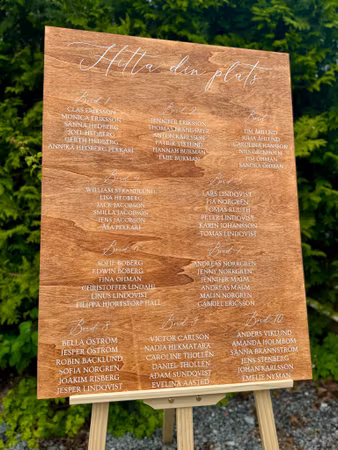 Hitta din plats
Bord 1
CLAS ERIKSSON
MONICA ERIKSSON
SANNA HEDBERG
JOEL HEDBERG
GERTH HEDBERG
ANNIKA HEDBERG PEKKARI
Bord 2
JENNIFER ERIKSSON
THOMAS
ANTON KARLSSON
PATRIK
HANNAH BURMAN
EMIL BURMAN
Bord 3
TIM ÅHLUND
AJJA ÅHLUND
CAROLINA HANSSON
NILS
TIM ÖHMAN
SANDRA ÖHMAN
Bord
WILLIAM STRANDLUND
LISA HEDBERG
JACK JACOBSON
SMILLA JACOBSON
JENS JANSON
ÅSA PEKKARI
Bord
LARS LINDQVIST
PIA NORGREN
TOMAS KLEITH
PETER LINDQVIST
KARIN JOHANSSON
TOMAS LINDQVIST
Bord 6
SOFIE BOBERG
EDWIN BOBERG
TINA ÖHMAN
CHRISTOFFER LINDAHL
LINUS LINDQVIST
FILIPPA HJORTSTORP HALL
Bord
ANDREAS NORGREN
JENNY NORGREN
JENNIFER MALM
ANDREAS MALM
MALIN NORGREN
GABRIEL ERICSSON
Bord 8
BELLA ÖSTRÖM
JESPER ÖSTRÖM
ROBIN BACKLUND
SOFIA NORGREN
JOAKIM RISBERG
JESPER LINDQVIST
Bord 9
VICTOR CARLSON
NADIA HEKMATARA
CAROLINE THOLLÉN
DANIEL THOLLÉN
ADAM SUNDQVIST
EVELINA AASTED
Bord 10
ANDERS VIKLUND
AMANDA HOLMBOM
SANNA BRÄNNSTRÖM
JENS STENBERG
JOHAN KARLSSON
EMELIE NYMAN